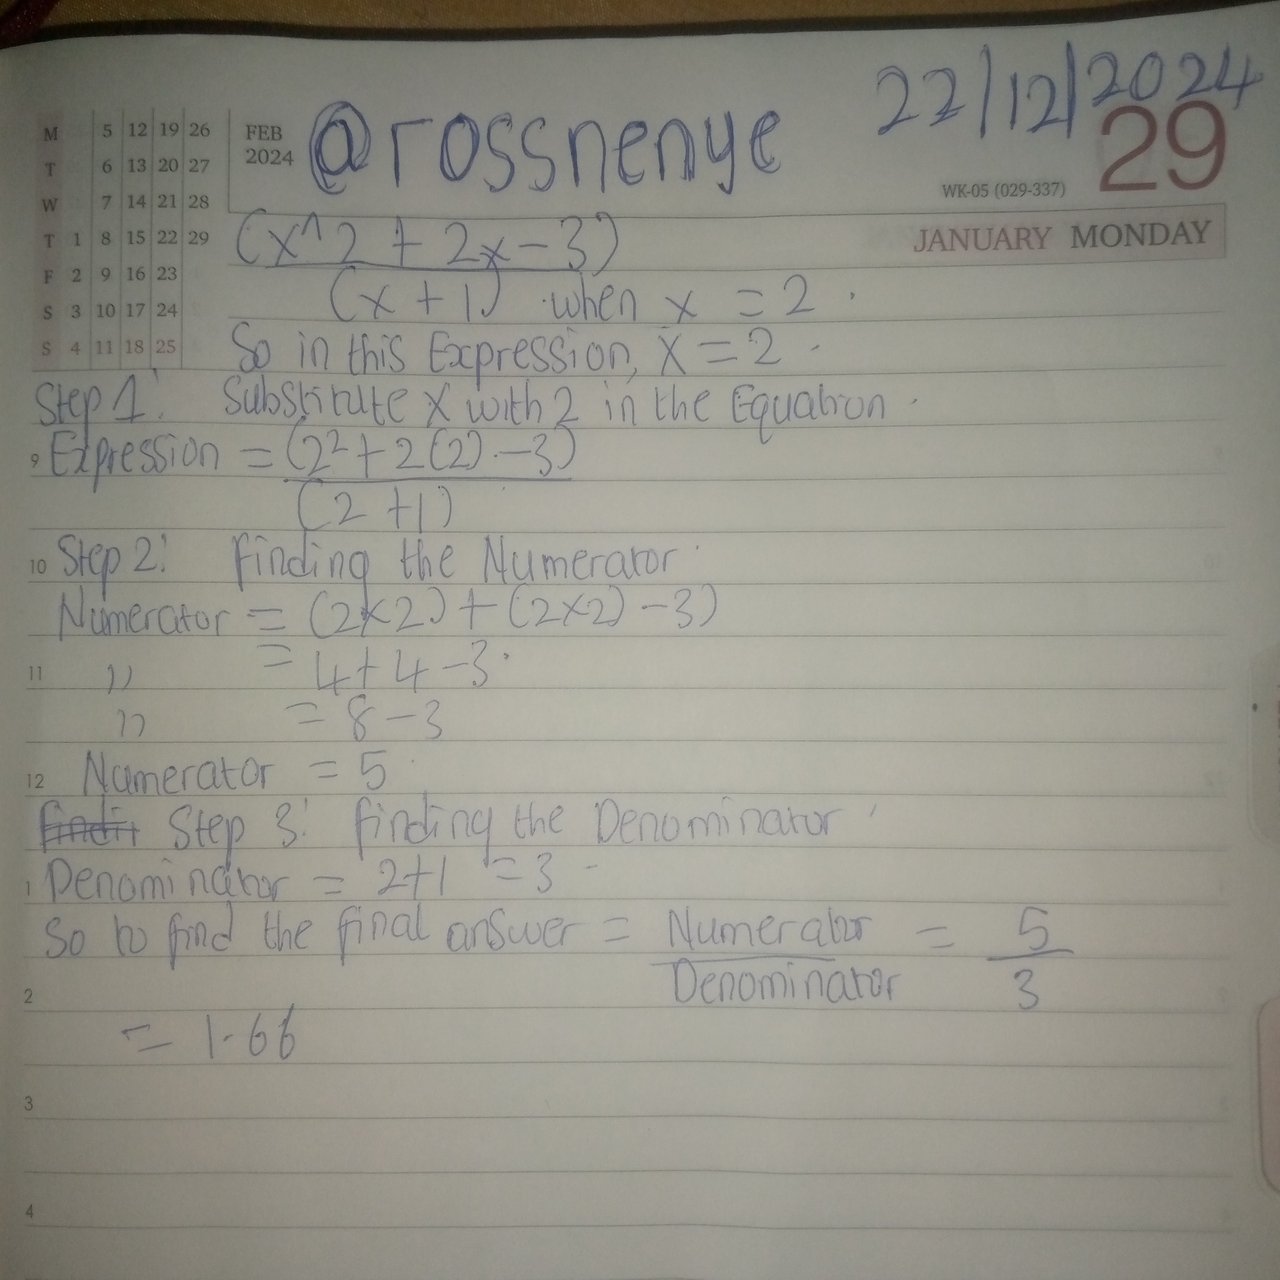 22/12/2024
@rossnenye
FEB
2024
M 5 12 19 26
T 6 13 20 27
W 7 14 21 28
T 1 8 15 22 29
F 2 9 16 23
S 3 10 17 24
S 4 11 18 25
29
WK-05 (029-337)
JANUARY MONDAY
(x^2 + 2x - 3)
(x + 1) when x = 2.
So in this Expression, x = 2.
Step 1: Substitute x with 2 in the Equation.
9 Expression = (2² + 2(2) - 3)
(2 + 1)
10 Step 2: Finding the Numerator.
Numerator = (2x2) + (2x2) - 3)
11 ,, = 4 + 4 - 3.
,, = 8 - 3
12 Numerator = 5
Step 3: Finding the Denominator.
1 Denominator = 2+1 = 3
So to find the final answer = Numerator = 5
2 Denominator 3
= 1.66
3
4